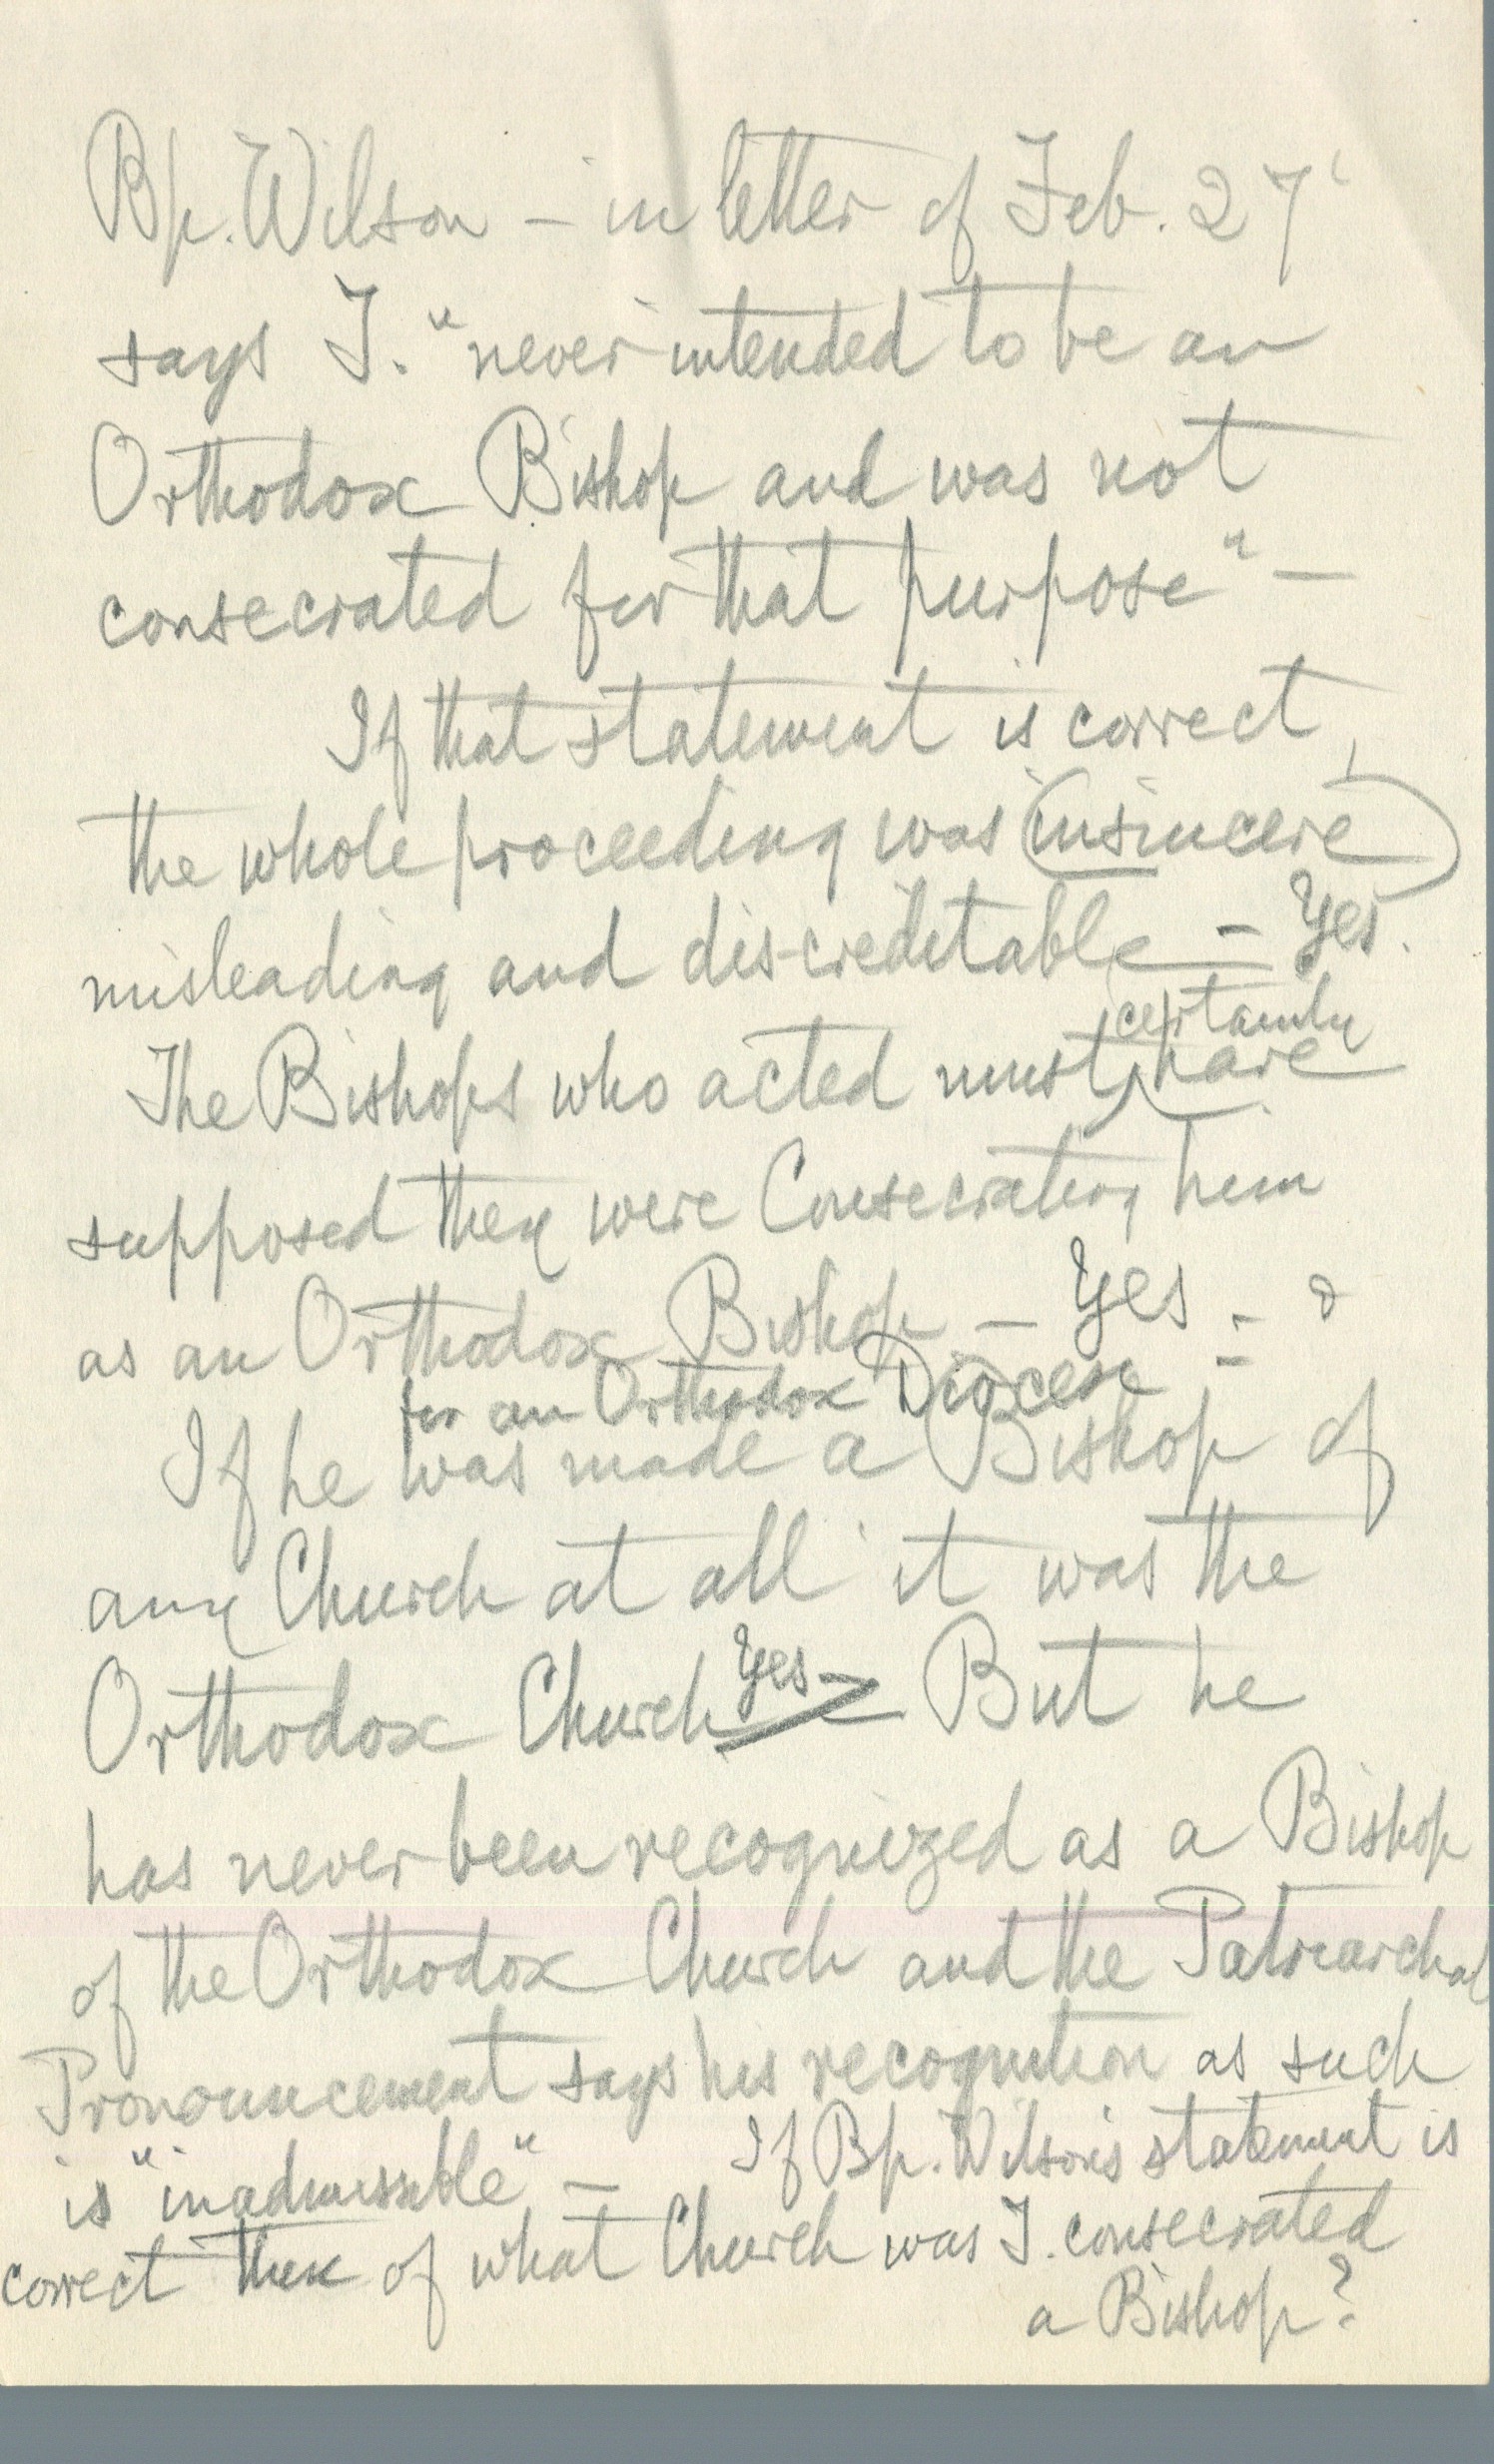 Bp. Wilson – in letter of Feb. 27'
says T. "never intended to be an
Orthodox Bishop and was not
consecrated for that purpose" –
If that statement is correct,
the whole proceeding was insincere
misleading and discreditable – Yes.
certainly
The Bishops who acted must have
supposed they were Consecrating him
as an Orthodox Bishop – Yes – &
for an Orthodox Diocese –
If he was made a Bishop of
any Church at all it was the
Orthodox Church Yes – But he
has never been recognized as a Bishop
of the Orthodox Church and the Patriarchal
Pronouncement says his recognition as such
is "inadmissable" – If Bp. Wilson's statement is
correct then of what Church was T. consecrated
a Bishop?